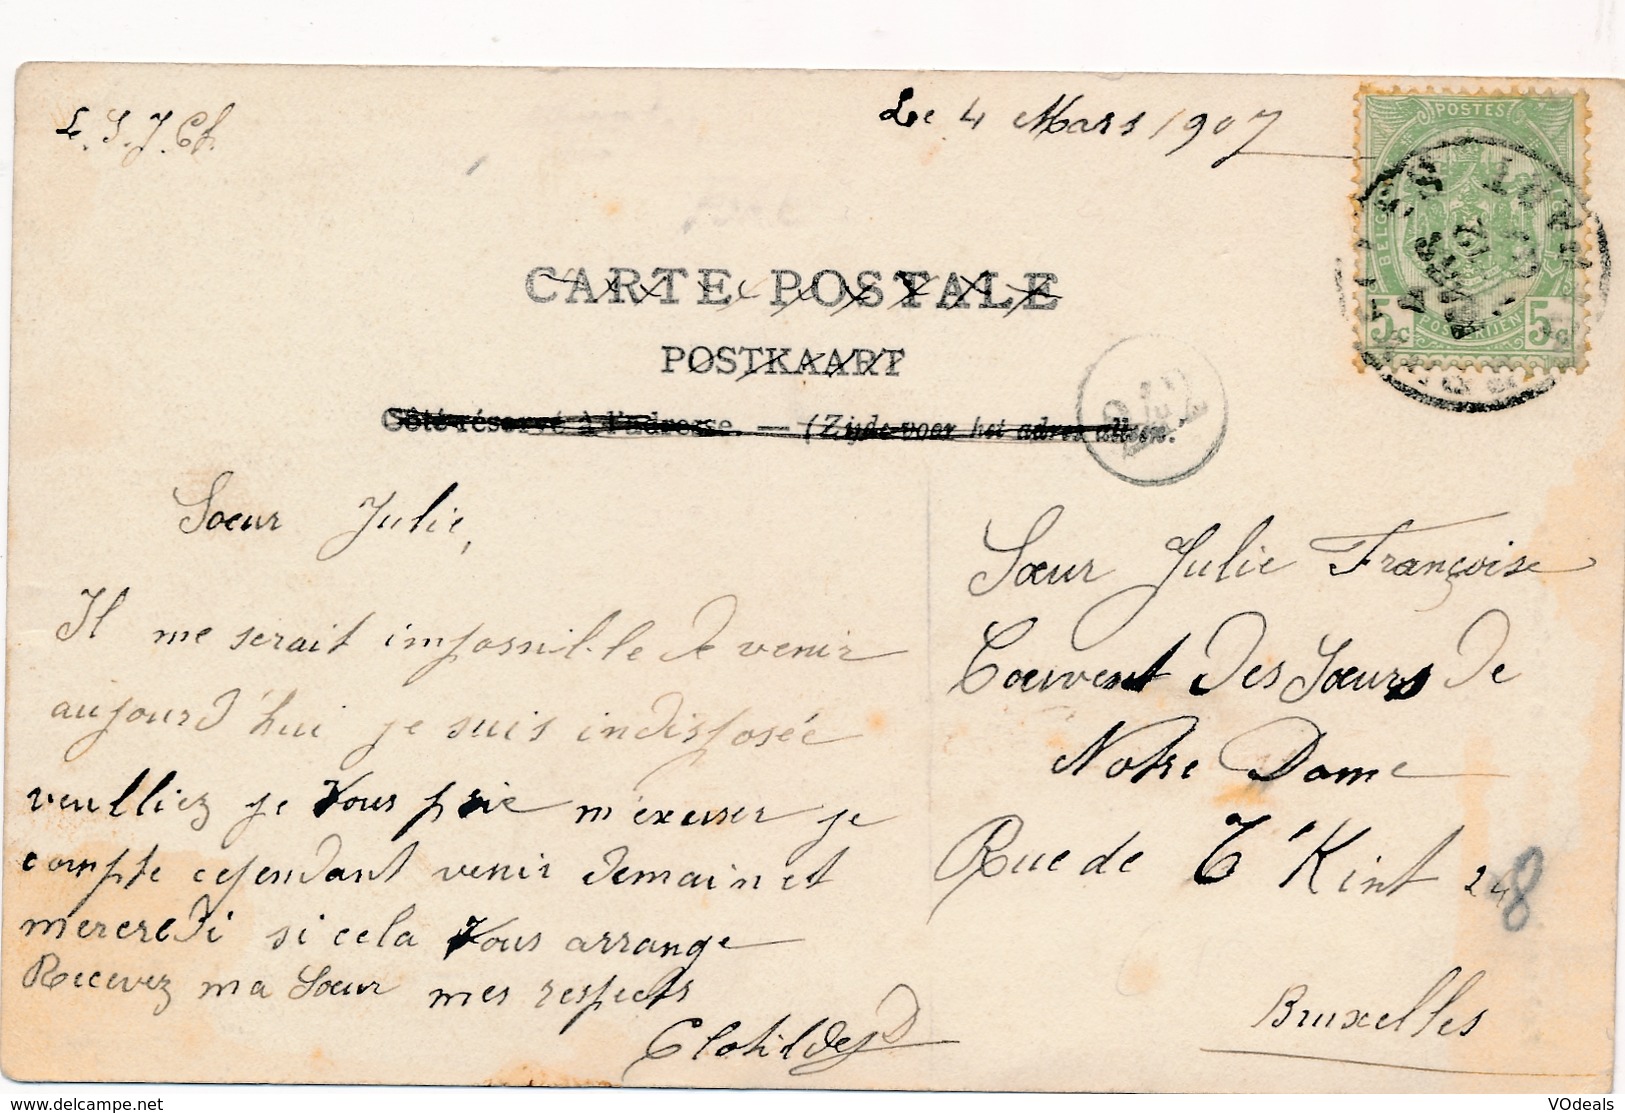 L. S. J. Ch.
Le 4 Mars 1907
POSTES
BELGIQUE
BELGIË
5c 5c
POSTERIJEN
CARTE POSTALE
POSTKAART
Côté réservé à l'adresse. — (Zijde voor het adres alleen.
Sœur Julie,
Il me serait impossible de venir
aujourd'hui je suis indisposée
veulliez je vous prie m'excuser je
compte cependant venir demain et
mercredi si cela vous arrange
Recevez ma Sœur mes respects
Clotilde
Sœur Julie Françoise
Couvent des Sœurs de
Notre Dame
Rue de T'Kint 24
8
Bruxelles
www.delcampe.net
VOdeals